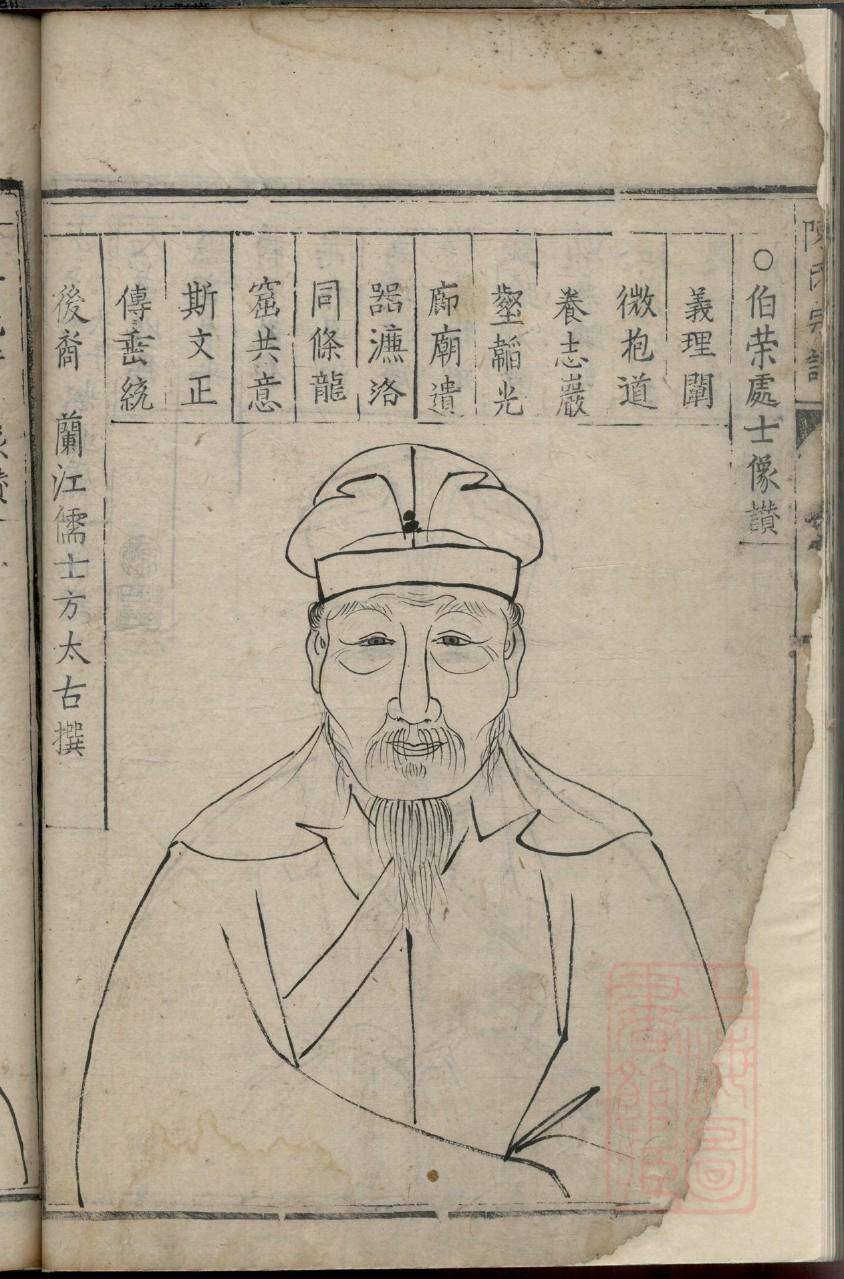 陳氏宗譜
○伯荣處士像讃
義理闡
微抱道
養志巖
壑韜光
廊廟遺
器濂洛
同條龍
窟共意
斯文正
傳垂統
後裔 蘭江儒士方太古撰